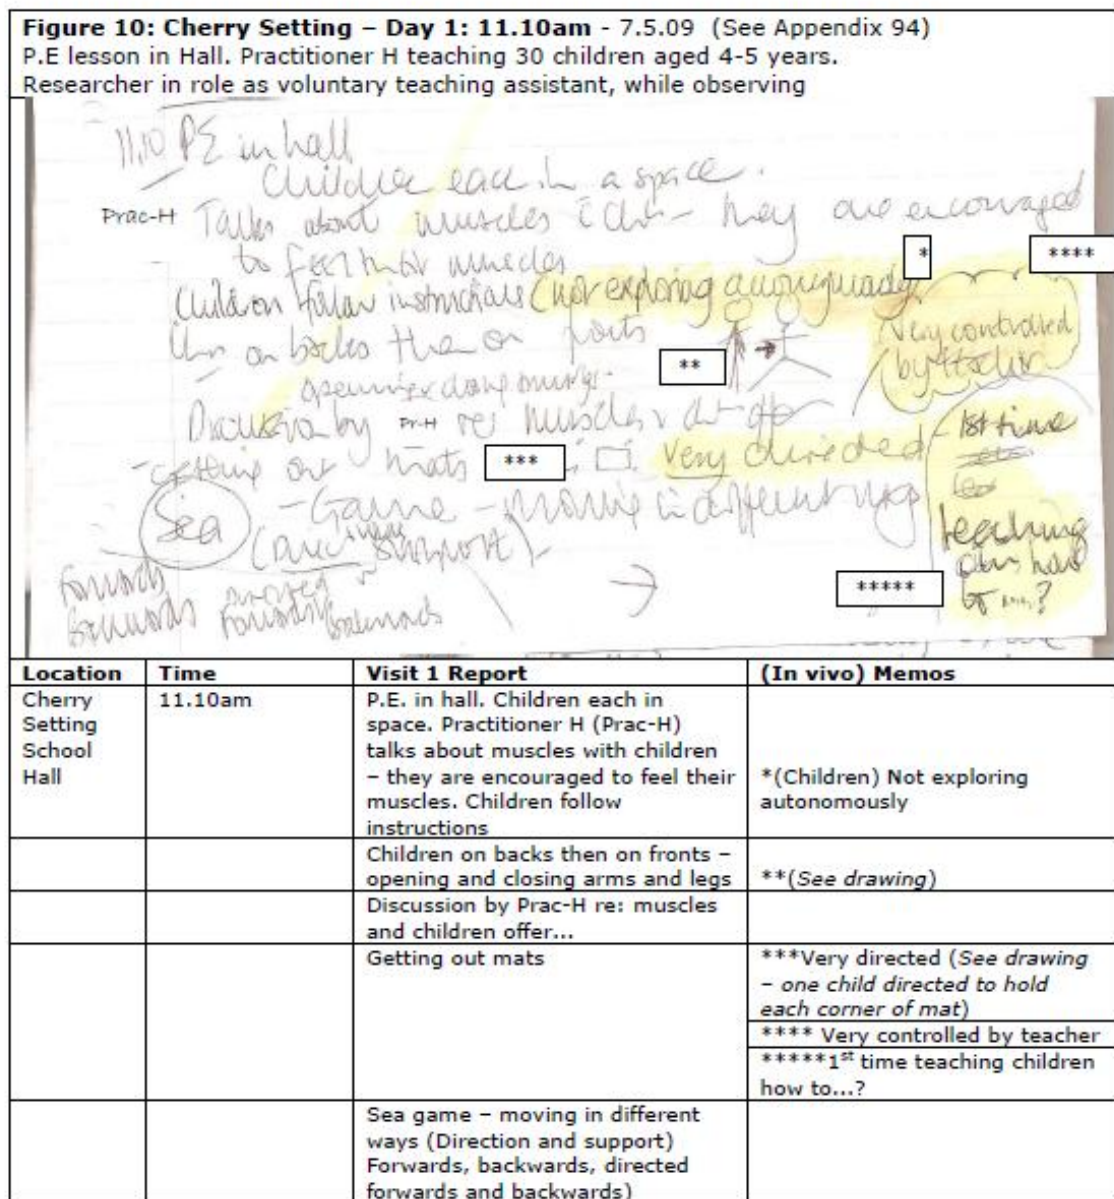 Figure 10: Cherry Setting – Day 1: 11.10am - 7.5.09 (See Appendix 94)
P.E lesson in Hall. Practitioner H teaching 30 children aged 4-5 years.
Researcher in role as voluntary teaching assistant, while observing
11.10 PE in hall
Children each in a space.
Prac-H Talks about muscles c chn - they are encouraged
to feel their muscles
*
****
Children follow instructions (not exploring autonomously)
on backs then on fronts
**
Very controlled
by teacher
opening closing
Discussion by Pr-H re: muscles & chn offer
- getting out mats *** Very directed
1st time
teaching
chn how
to ...?
Sea - Game - moving in different ways
support) -
*****
Forwards
Backwards directed
Forwards Backwards
Location Time Visit 1 Report (In vivo) Memos
Cherry 11.10am P.E. in hall. Children each in
Setting space. Practitioner H (Prac-H)
School talks about muscles with children
Hall – they are encouraged to feel their *(Children) Not exploring
muscles. Children follow autonomously
instructions
Children on backs then on fronts –
opening and closing arms and legs **(See drawing)
Discussion by Prac-H re: muscles
and children offer...
Getting out mats ***Very directed (See drawing
– one child directed to hold
each corner of mat)
**** Very controlled by teacher
*****1st time teaching children
how to...?
Sea game – moving in different
ways (Direction and support)
Forwards, backwards, directed
forwards and backwards)